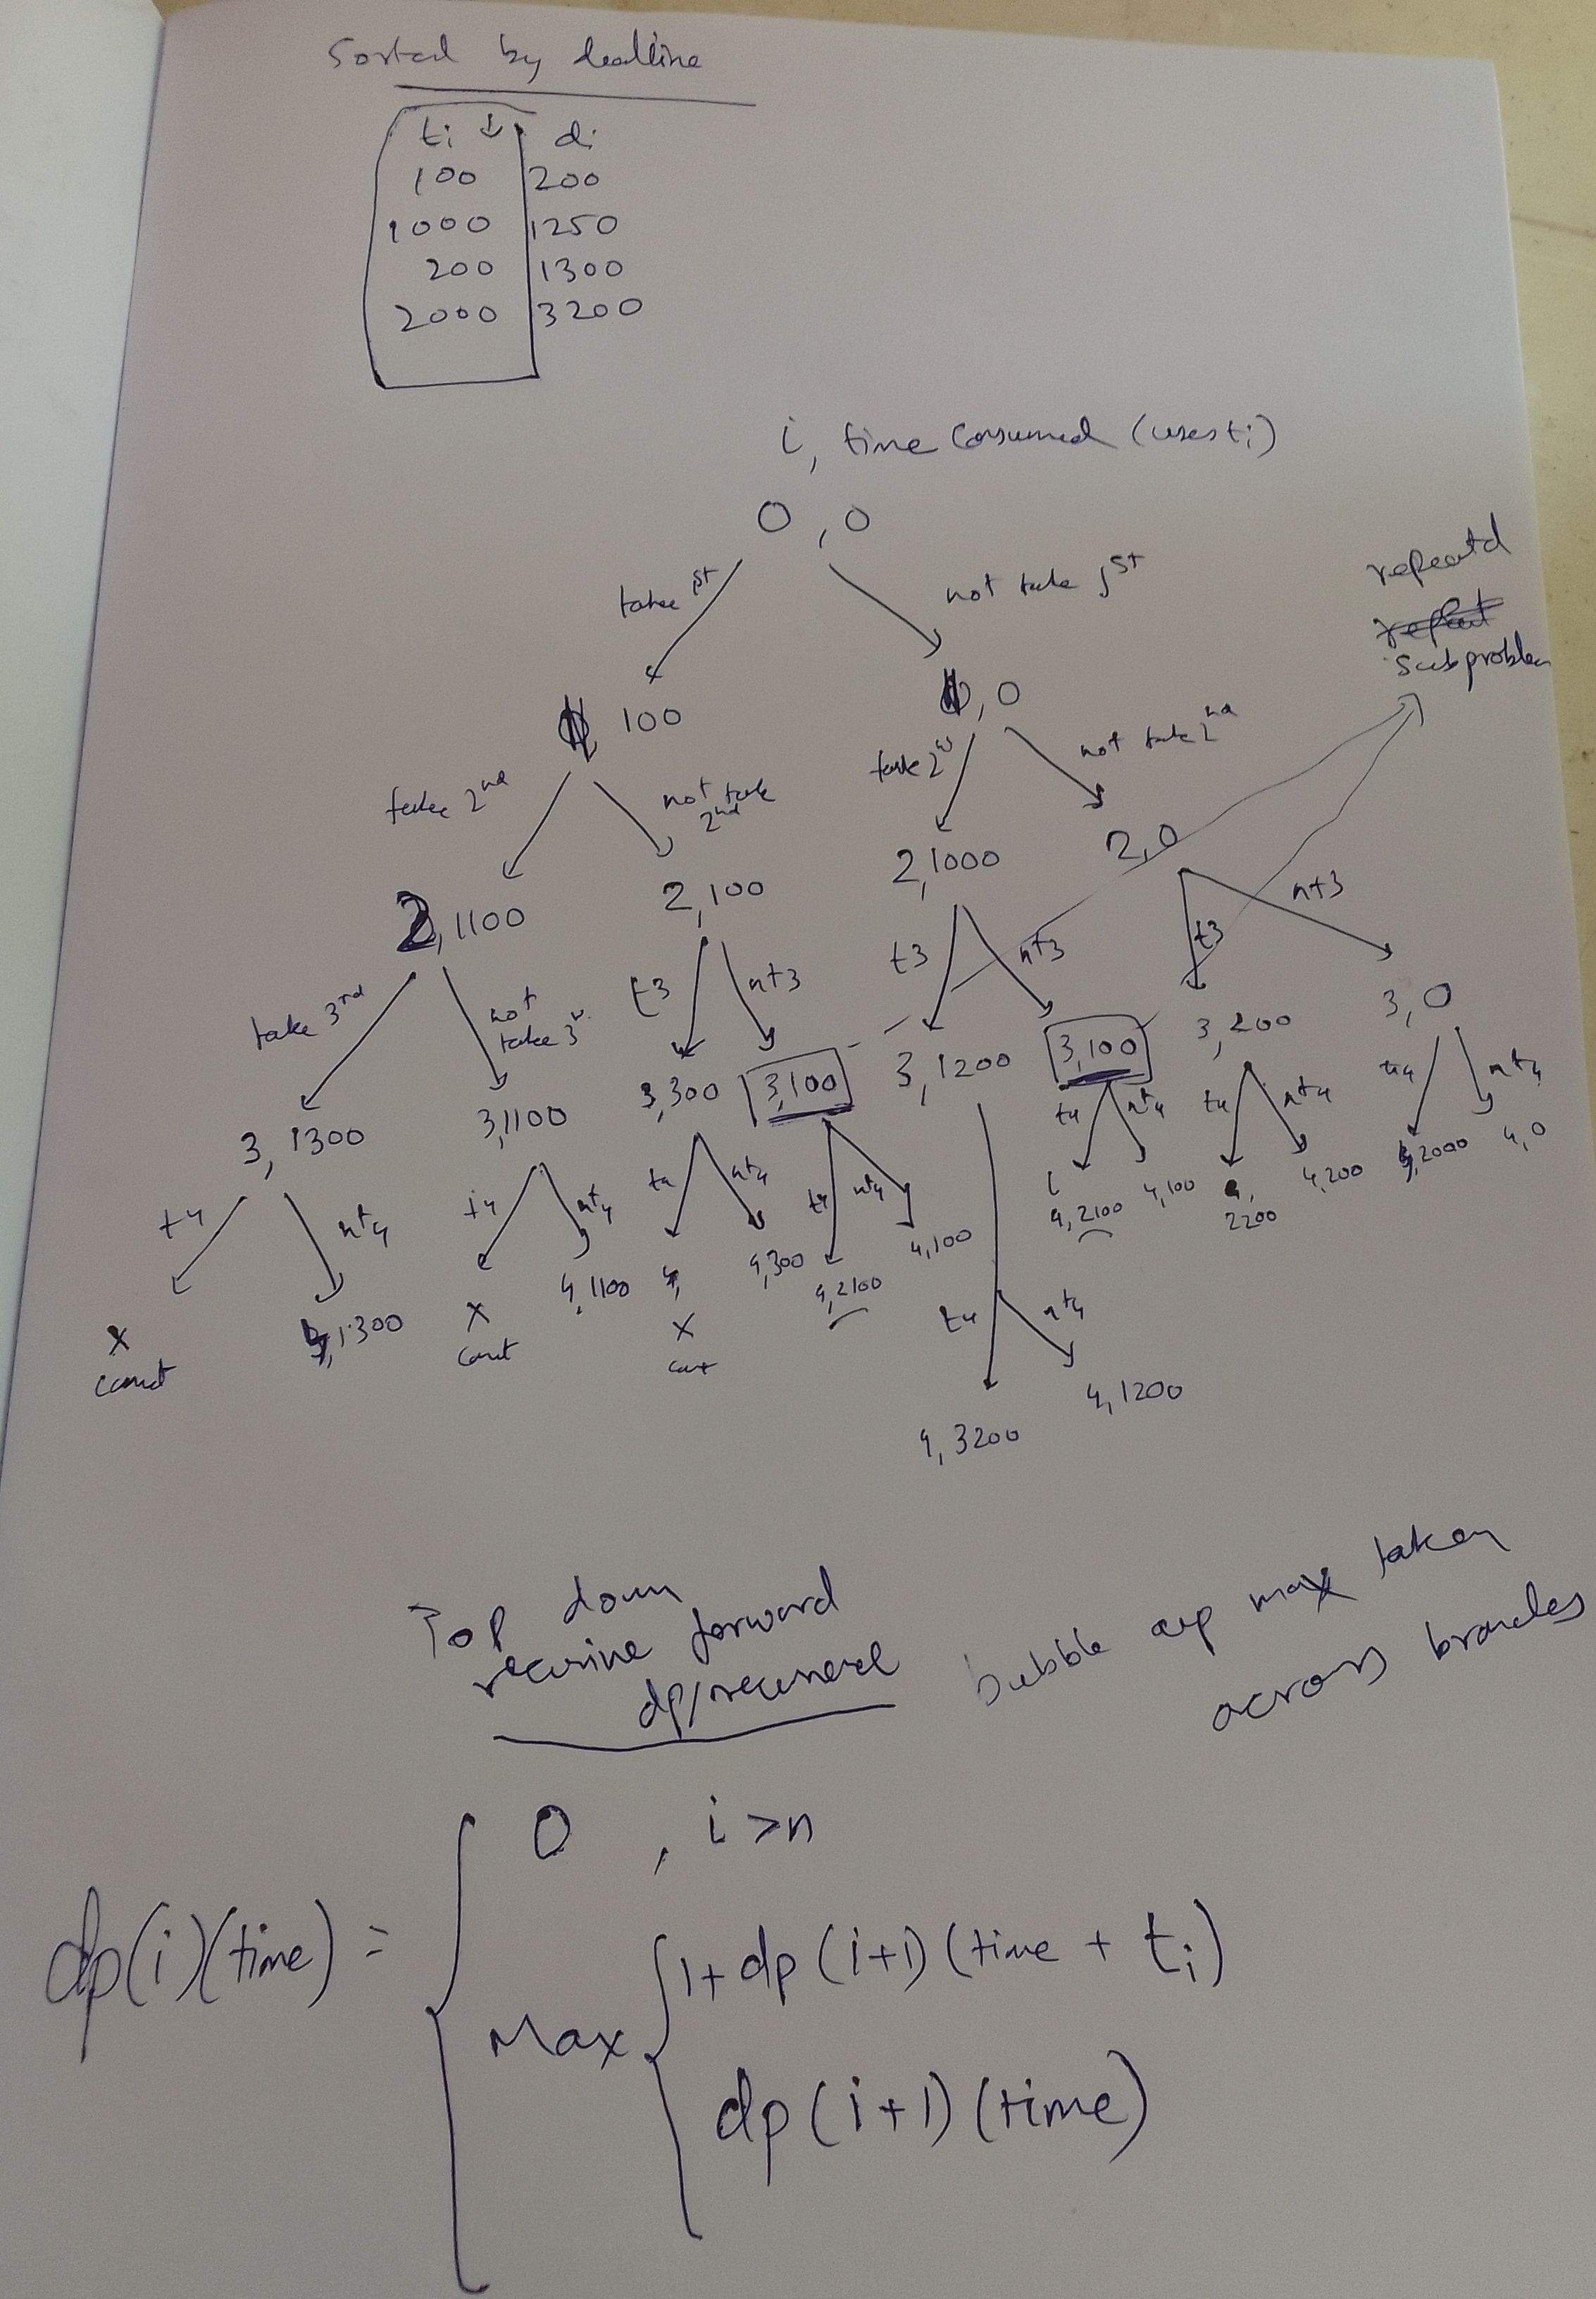 Sorted by deadline
ti ↓ di
100 200
1000 1250
200 1300
2000 3200
i, time consumed (uses ti)
0, 0
take 1st
not take 1st
repeated
subproblem
1, 100
1, 0
take 2nd
not take 2nd
take 2nd
not take 2nd
2, 1100
2, 100
2, 1000
2, 0
take 3rd
not take 3rd
t3
nt3
t3
nt3
t3
nt3
3, 1300
3, 1100
3, 300
3, 100
3, 1200
3, 100
3, 200
3, 0
t4
nt4
t4
nt4
t4
nt4
t4
nt4
t4
nt4
t4
nt4
nt4
X
cant
4, 1300
X
cant
4, 1100
4,
X
4, 300
4, 2100
4, 100
4, 2100
4, 100
4, 2200
4, 200
4, 2000
4, 0
t4
nt4
4, 3200
4, 1200
Top down
recursive forward
bubble up max taken
across branches
0 , i > n
dp(i)(time) =
Max
1 + dp(i+1)(time + ti)
dp(i+1)(time)